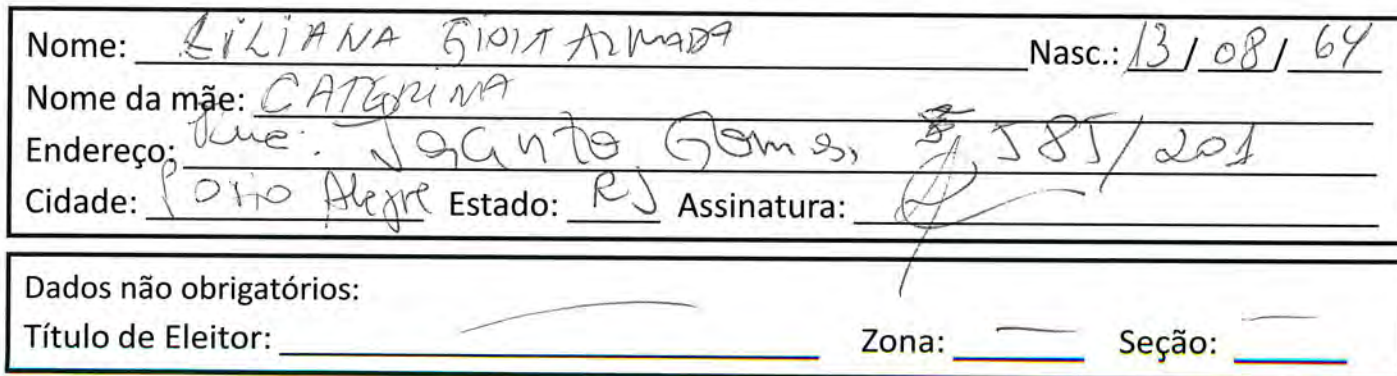 Nome: LILIANA Nasc.: 13/08/64
Nome da mãe: CATERINA
Endereço: Rua: Jacinto Gomes, 585/201
Cidade: Porto Alegre Estado: RJ Assinatura:
Dados não obrigatórios:
Título de Eleitor: Zona: Seção: